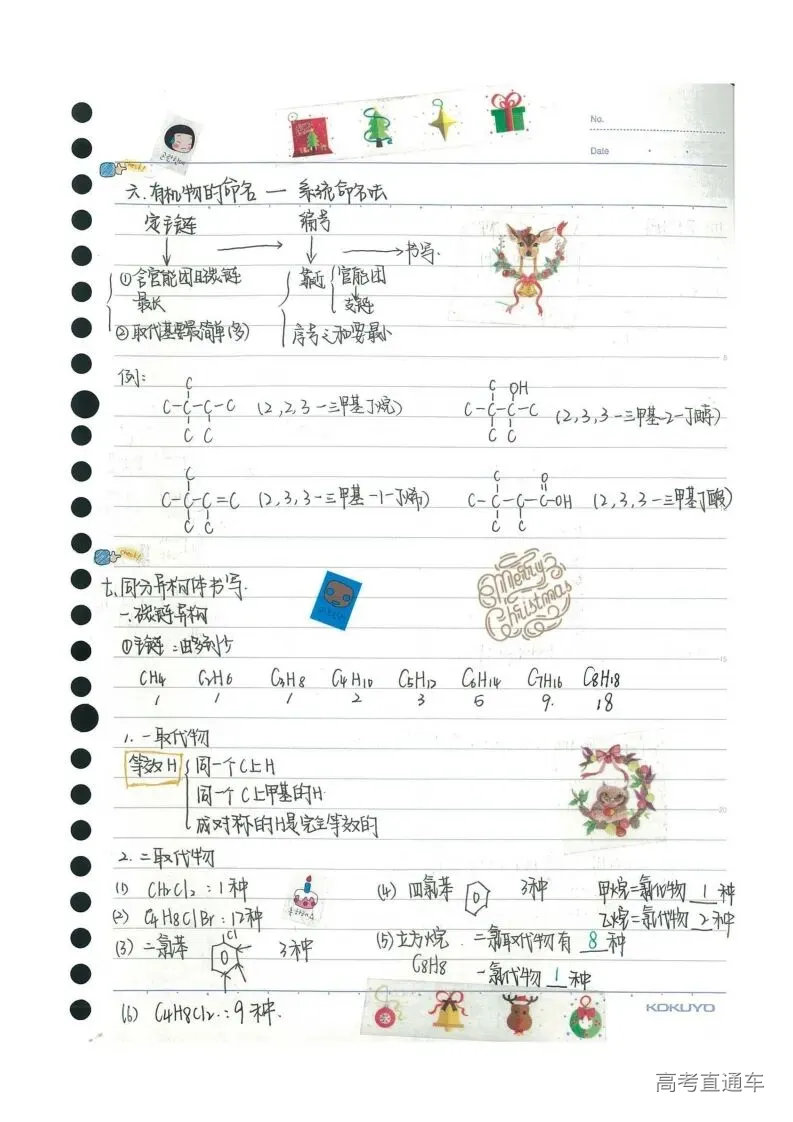 No.
Date
六.有机物的命名 — 系统命名法
定主链 编号
书写.
①含官能团且碳链 靠近 官能团
最长 支链
②取代基要最简单(多) 序号之和要最小
例:
C C OH
C-C-C-C (2,2,3-三甲基丁烷) C-C-C-C (2,3,3-三甲基-2-丁醇)
C C C C
C C O
C-C-C=C (2,3,3-三甲基-1-丁烯) C-C-C-C-OH (2,3,3-三甲基丁酸)
C C C C
七.同分异构体书写.
一.碳链异构
①主链:由多到少
CH4 C2H6 C3H8 C4H10 C5H12 C6H14 C7H16 C8H18
1 1 1 2 3 5 9. 18
1.一取代物
等效H 同一个C上H
同一个C上甲基的H
成对称的H是完全等效的
2.二取代物
(1) CH2Cl2:1种 (4) 四氯苯 3种 甲烷二氯代物 1 种
(2) C4H8ClBr:12种 乙烷二氯代物 2 种
(3) 二氯苯 Cl 3种 (5)立方烷 二氯取代物有 8 种
C8H8 一氯代物 1 种
(6) C4H8Cl2:9种.
KOKUYO
Merry Christmas
高考直通车